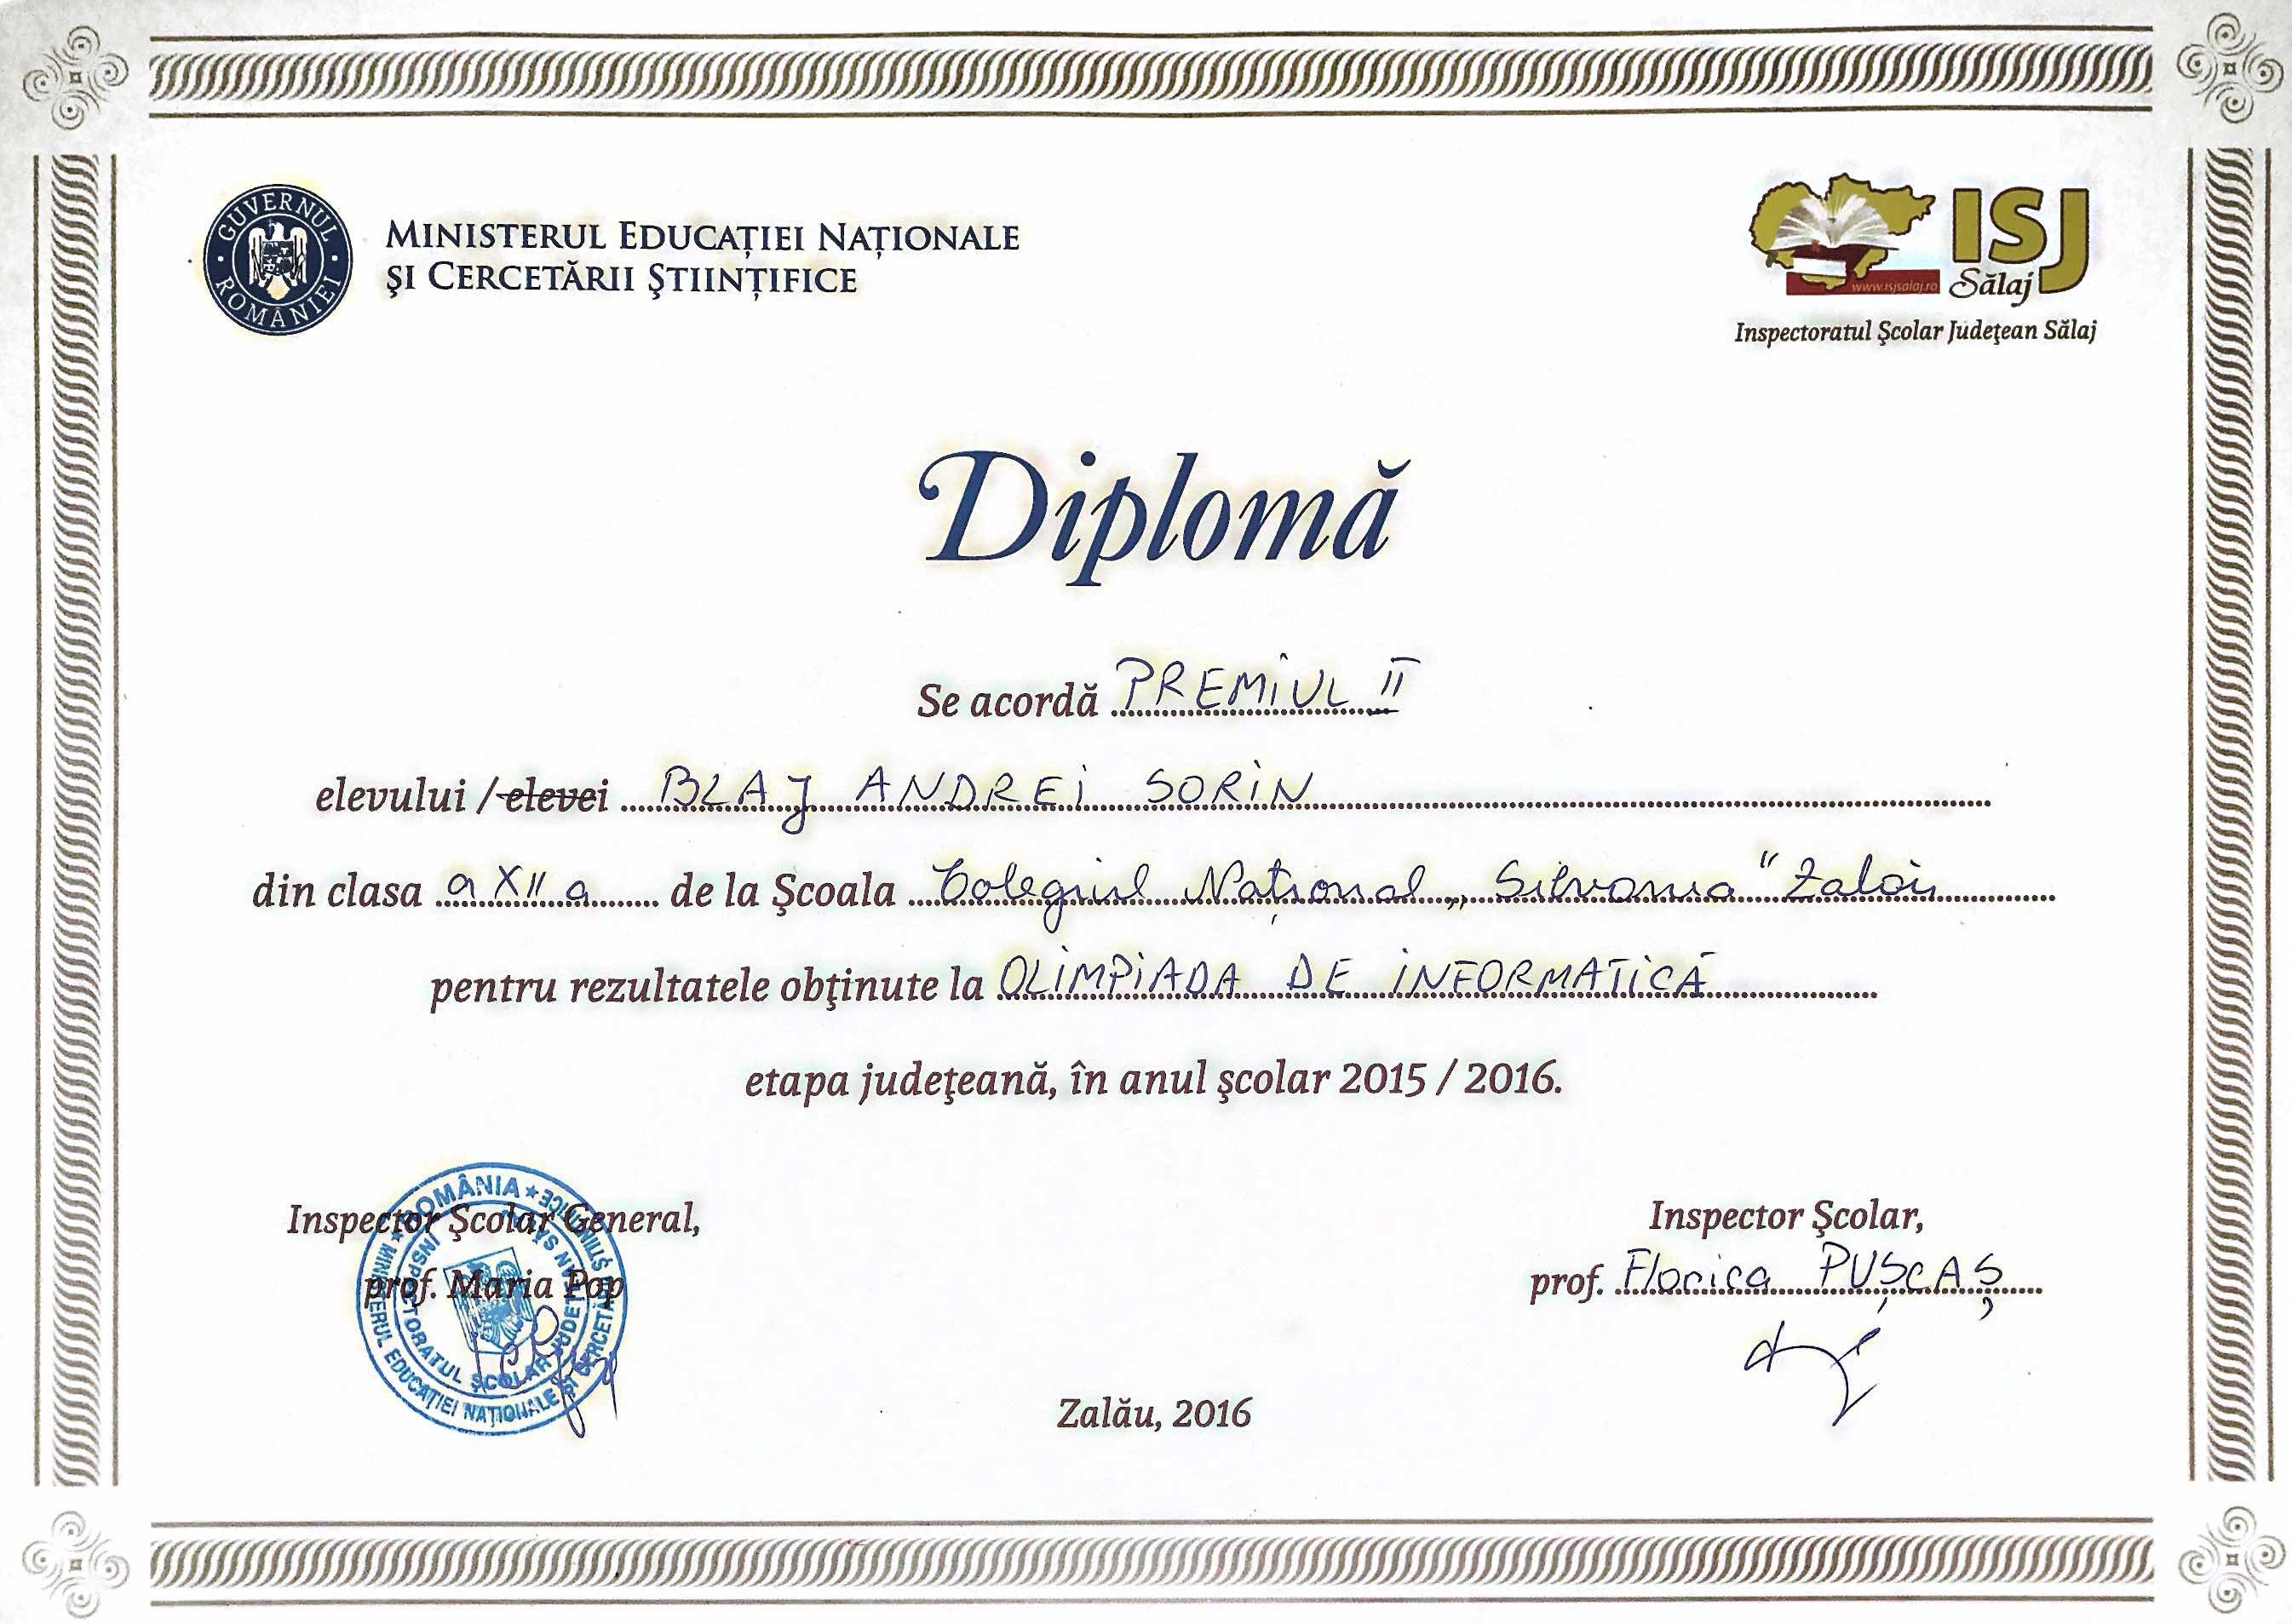 GUVERNUL ROMÂNIEI
MINISTERUL EDUCAȚIEI NAȚIONALE
ȘI CERCETĂRII ȘTIINȚIFICE
ISJ
Sălaj
www.isjsalaj.ro
Inspectoratul Şcolar Judeţean Sălaj
Diplomă
Se acordă PREMIUL II
elevului / elevei BLAJ ANDREI SORIN
din clasa a XII a de la Şcoala Colegiul Național „Silvania" Zalău
pentru rezultatele obţinute la OLIMPIADA DE INFORMATICĂ
etapa judeţeană, în anul şcolar 2015 / 2016.
Inspector Şcolar General,
prof. Maria Pop
ROMÂNIA * MINISTERUL EDUCAȚIEI NAȚIONALE ȘI CERCETĂRII ȘTIINȚIFICE *
INSPECTORATUL ȘCOLAR JUDEȚEAN SĂLAJ
Inspector Şcolar,
prof. Florica PUȘCAȘ
Zalău, 2016